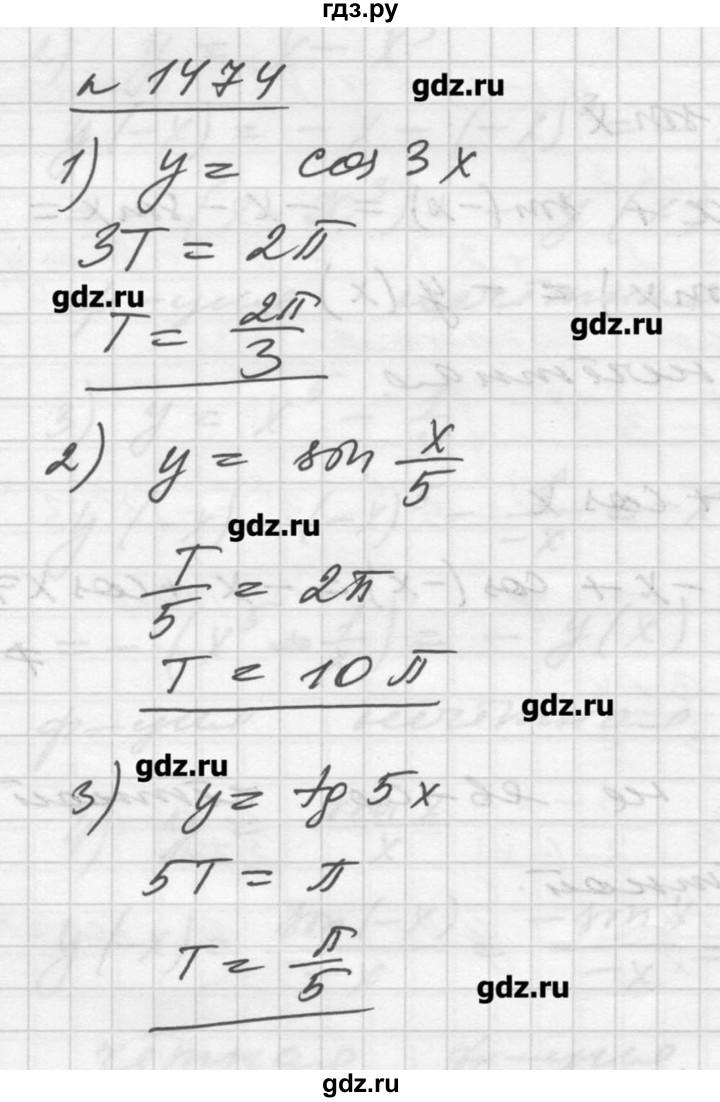 гдз.ру
n 1474
gdz.ru
1) y = cos 3x
3T = 2π
gdz.ru
T = 2π/3
gdz.ru
2) y = sin x/5
gdz.ru
T/5 = 2π
T = 10π
gdz.ru
gdz.ru
3) y = tg 5x
5T = π
T = π/5
gdz.ru
gdz.ru